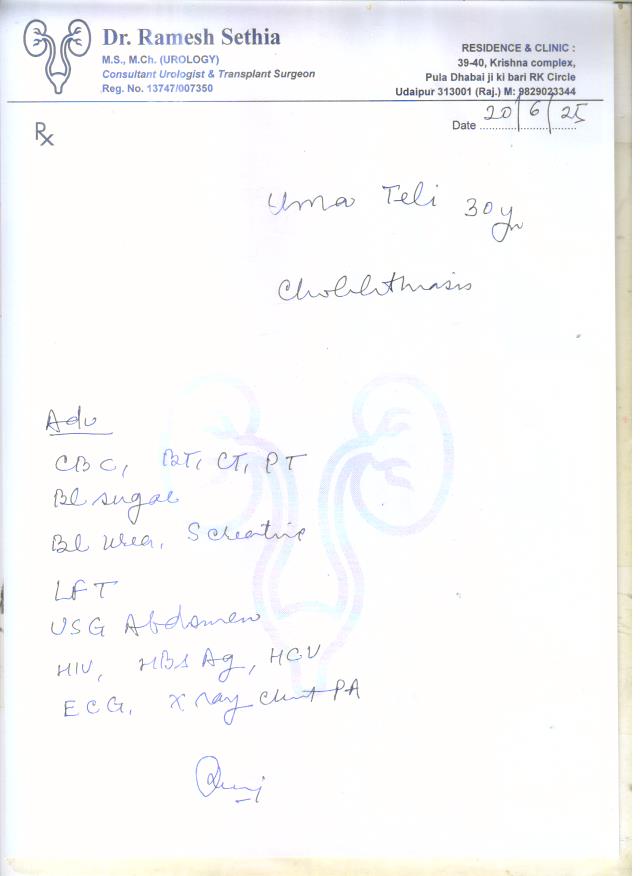 Dr. Ramesh Sethia
M.S., M.Ch. (UROLOGY)
Consultant Urologist & Transplant Surgeon
Reg. No. 13747/007350
RESIDENCE & CLINIC :
39-40, Krishna complex,
Pula Dhabai ji ki bari RK Circle
Udaipur 313001 (Raj.) M: 9829023344
Date 20/6/25
Rx
Uma Teli 30yr
Cholelithiasis
Adv
CBC, BT, CT, PT
Bl sugar
Bl urea, S creatinine
LFT
USG Abdomen
HIV, HBs Ag, HCV
ECG, X ray Chest PA